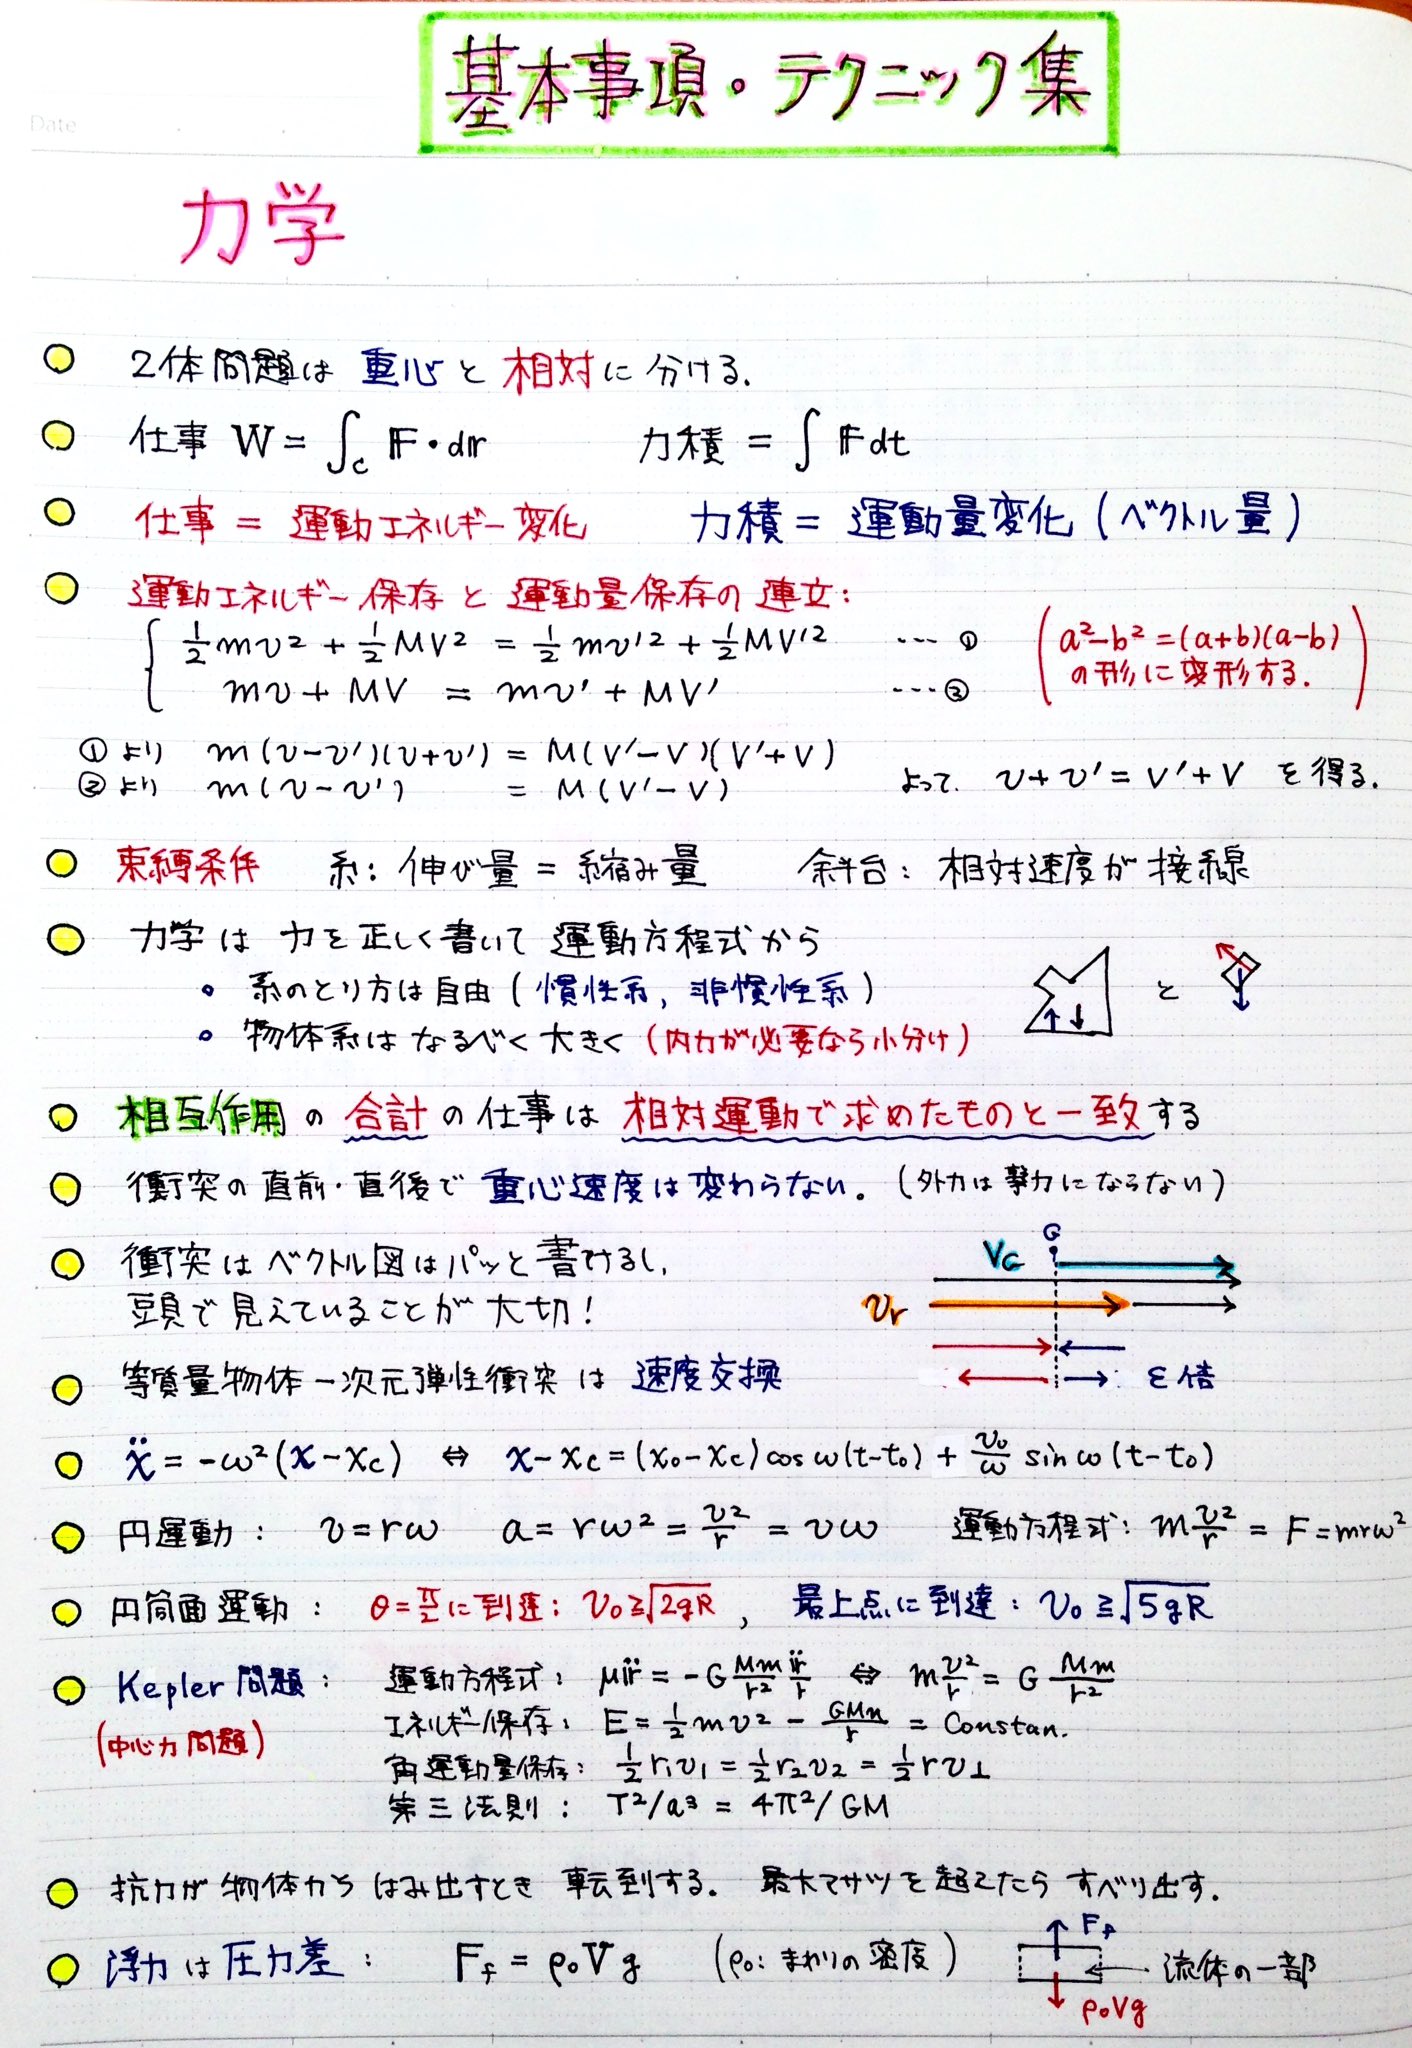 Date
基本事項・テクニック集
力学
2体問題は 重心 と 相対 に 分ける.
仕事 W = ∫_C F・dr　　力積 = ∫ F dt
仕事 = 運動エネルギー変化　　力積 = 運動量変化 (ベクトル量)
運動エネルギー保存 と 運動量保存の 連立:
1/2 mv² + 1/2 MV² = 1/2 mv'² + 1/2 MV'² ---- ①
mv + MV = mv' + MV' ---- ②
(a²-b² = (a+b)(a-b)
の形に変形する.)
①より m(v-v')(v+v') = M(V'-V)(V'+V)
②より m(v-v') = M(V'-V)
よって. v+v' = V'+V を得る.
束縛条件　糸: 伸び量 = 縮み量　　斜台: 相対速度が 接線
力学は 力を正しく書いて 運動方程式から
・系のとり方は自由 (慣性系, 非慣性系)
・物体系は なるべく大きく (内力が必要なら小分け)
と
相互作用 の 合計 の 仕事は 相対運動で求めたものと一致する
衝突の 直前・直後で 重心速度は 変わらない. (外力は撃力にならない)
衝突は ベクトル図は パッと 書けるし,
頭で見えていることが 大切!
G
V_G
v_r
ε倍
等質量物体 一次元弾性衝突 は 速度交換
ẍ = -ω²(x-x_c) ⇔ x-x_c = (x₀-x_c) cos ω(t-t₀) + v₀/ω sin ω(t-t₀)
円運動: v = rω　a = rω² = v²/r = vω　運動方程式: m v²/r = F = mrω²
円筒面運動: θ = π/2 に到達: v₀ ≧ √2gR , 最上点に到達: v₀ ≧ √5gR
Kepler 問題: 運動方程式: μr̈ = -G Mm/r² r̈/r ⇔ m v²/r = G Mm/r²
(中心力問題)
エネルギー保存: E = 1/2 mv² - GMm/r = Constan.
角運動量保存: 1/2 r₁v₁ = 1/2 r₂v₂ = 1/2 r v⊥
第三法則: T²/a³ = 4π²/GM
抗力が 物体から はみ出すとき 転倒する. 最大マサツを超えたら すべり出す.
浮力は 圧力差: F_f = ρ₀Vg (ρ₀: まわりの密度)
F_f
流体の一部
ρ₀Vg